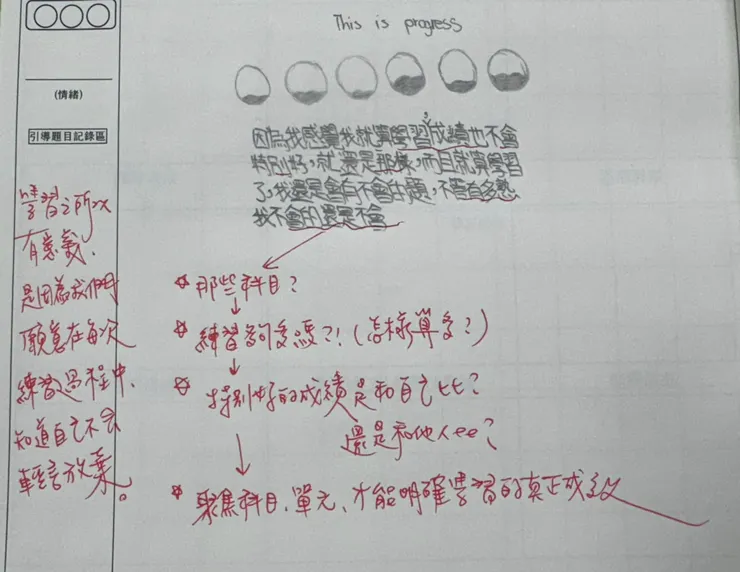 This is progress
(情緒)
引導題目記錄區
因為我感覺我就算學習成績也不會
特別好,就還是那樣,而且就算學習
了,我還是會有不會的題,不管有多熟
我不會的還是不會
學習之所以
有意義,
是因為我們
願意在每次
練習過程中,
知道自己不會
輕言放棄。
那些科目?
練習夠多嗎?!(怎樣算多?)
特別好的成績是和自己比?
還是和他人比?
聚焦科目、單元、才能明確學習的真正成效